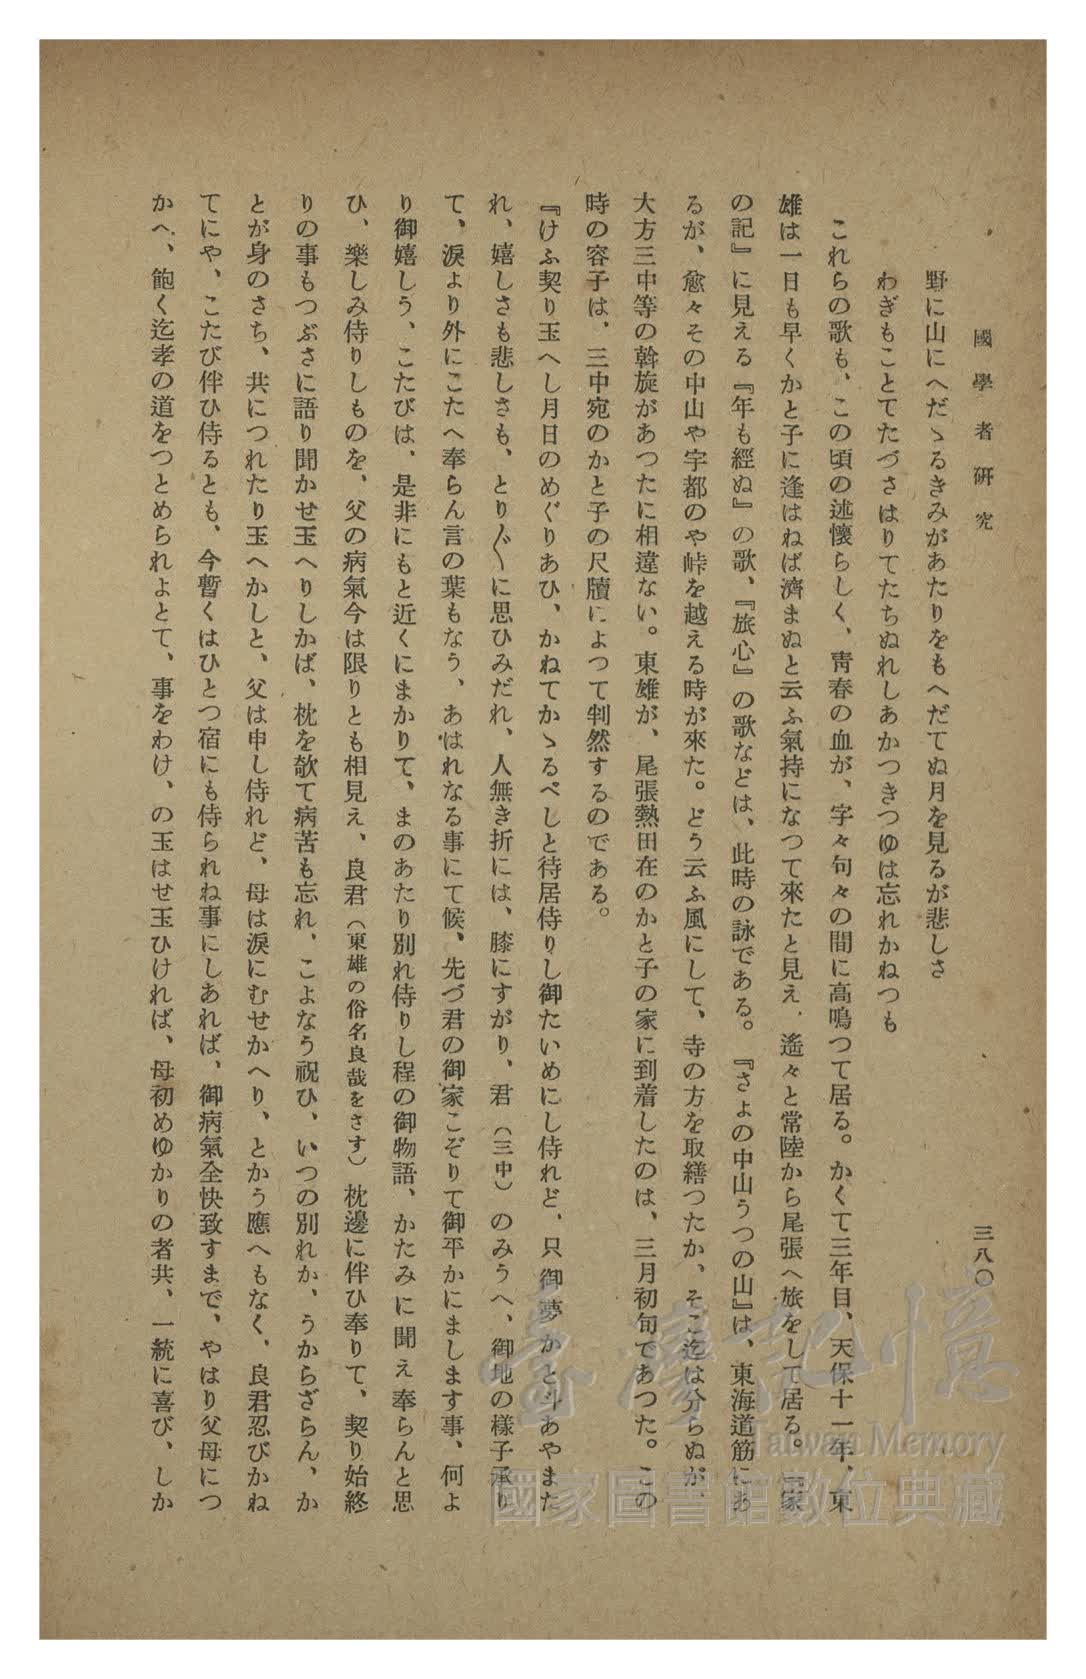 國學者研究
三八〇
野に山にへだゝるきみがあたりをもへだてぬ月を見るが悲しさ
わぎもことてたづさはりてたちぬれしあかつきつゆは忘れかねつも
これらの歌も、この頃の述懷らしく、靑春の血が、字々句々の間に高鳴つて居る。かくて三年目、天保十一年、東
雄は一日も早くかと子に逢はねば濟まぬと云ふ氣持になつて來たと見え、遙々と常陸から尾張へ旅をして居る。『家
の記』に見える『年も經ぬ』の歌、『旅心』の歌などは、此時の詠である。『さよの中山うつの山』は、東海道筋にあ
るが、愈々その中山や宇都のや峠を越える時が來た。どう云ふ風にして、寺の方を取繕つたか、そこ迄は分らぬが、
大方三中等の斡旋があつたに相違ない。東雄が、尾張熱田在のかと子の家に到着したのは、三月初旬であつた。この
時の容子は、三中宛のかと子の尺牘によつて判然するのである。
『けふ契り玉へし月日のめぐりあひ、かねてかゝるべしと待居侍りし御たいめにし侍れど、只御夢かと斗あやまた
れ、嬉しさも悲しさも、とり〴〵に思ひみだれ、人無き折には、膝にすがり、君（三中）のみうへ、御地の樣子承り
て、淚より外にこたへ奉らん言の葉もなう、あはれなる事にて候、先づ君の御家こぞりて御平かにまします事、何よ
り御嬉しう、こたびは、是非にもと近くにまかりて、まのあたり別れ侍りし程の御物語、かたみに聞え奉らんと思
ひ、樂しみ侍りしものを、父の病氣今は限りとも相見え、良君（東雄の俗名良哉をさす）枕邊に伴ひ奉りて、契り始終
りの事もつぶさに語り聞かせ玉へりしかば、枕を欹て病苦も忘れ、こよなう祝ひ、いつの別れか、うからざらん、か
とが身のさち、共につれたり玉へかしと、父は申し侍れど、母は淚にむせかへり、とかう應へもなく、良君忍びかね
てにや、こたび伴ひ侍るとも、今暫くはひとつ宿にも侍られね事にしあれば、御病氣全快致すまで、やはり父母につ
かへ、飽く迄孝の道をつとめられよとて、事をわけ、の玉はせ玉ひければ、母初めゆかりの者共、一統に喜び、しか
臺灣記憶
Taiwan Memory
國家圖書館數位典藏